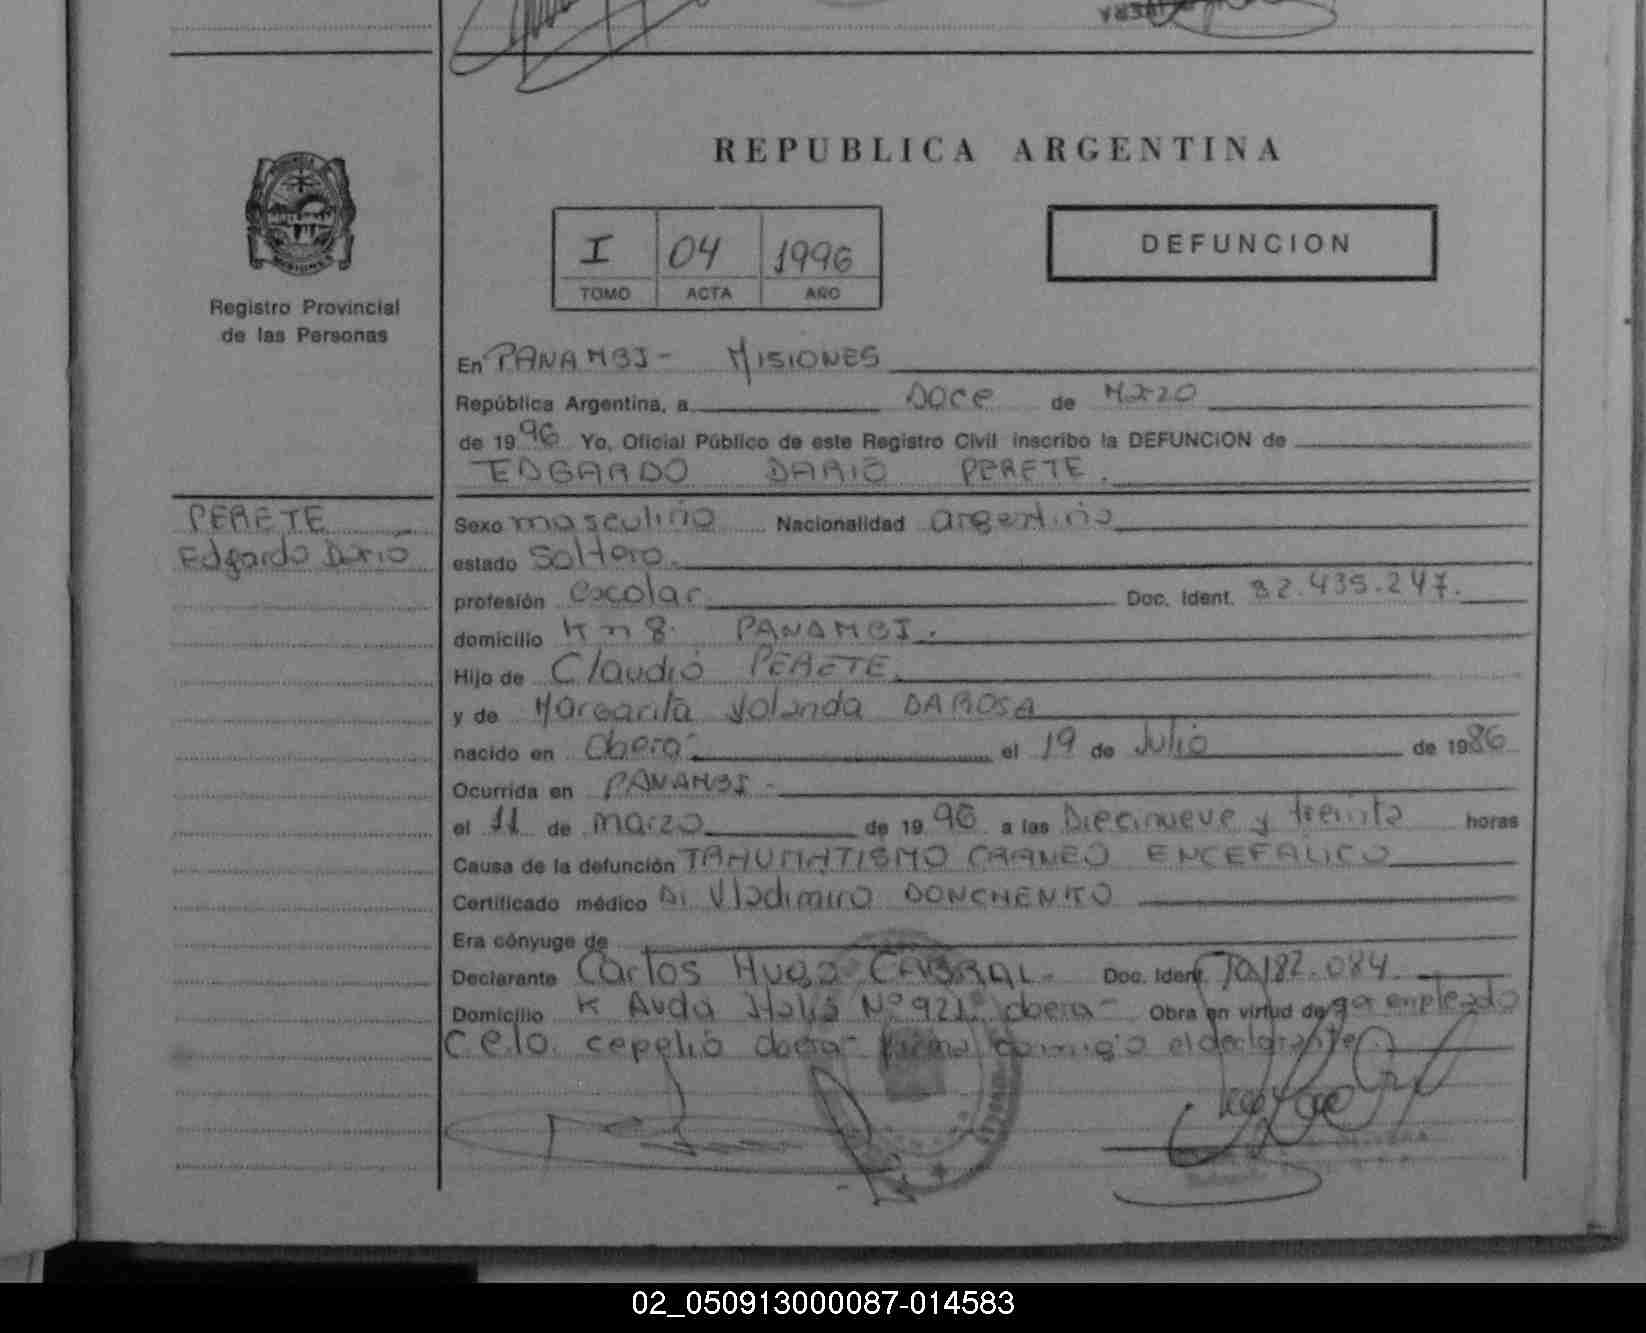 REPUBLICA ARGENTINA
I 04 1996
TOMO ACTA AÑO
DEFUNCION
Registro Provincial
de las Personas
En PANAMBI - MISIONES
República Argentina, a Doce de Marzo
de 1996 Yo, Oficial Público de este Registro Civil inscribo la DEFUNCION de
EDGARDO DARIO PERETE.
PERETE
Edgardo Dario
Sexo masculino Nacionalidad argentino
estado soltero.
profesión escolar Doc. Ident. 32.435.247.
domicilio Km 8. PANAMBI.
Hijo de Claudio PERETE
y de Margarita Yolanda DAROSA
nacido en Obera el 19 de Julio de 1986
Ocurrida en PANAMBI -
el 11 de marzo de 1996 a las Diecinueve y treinta horas
Causa de la defunción TRAHUMATISMO CRANEO ENCEFALICO
Certificado médico Vladimiro DONCHENKO
Era cónyuge de
Declarante Carlos Hugo CABRAL - Doc. Ident. 10.182.084
Domicilio Avda Italia Nº 921 obera - Obra en virtud de ser empleado
C.e.l.o. cepelio obera - firma comigo el declarante
02_050913000087-014583